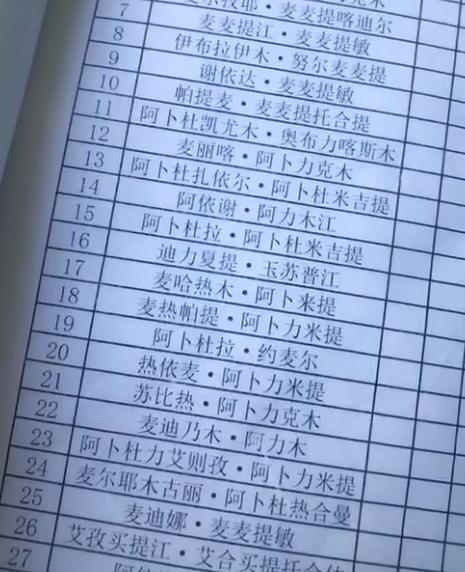 7 麦尔孜耶·麦麦提喀迪尔
8 麦麦提江·麦麦提敏
9 伊布拉伊木·努尔麦麦提
10 谢依达·麦麦提敏
11 帕提麦·麦麦提托合提
12 阿卜杜凯尤木·奥布力喀斯木
13 麦丽喀·阿卜力克木
14 阿卜杜扎依尔·阿卜杜米吉提
15 阿依谢·阿力木江
16 阿卜杜拉·阿卜杜米吉提
17 迪力夏提·玉苏普江
18 麦哈热木·阿卜来提
19 麦热帕提·阿卜力米提
20 阿卜杜拉·约麦尔
21 热依麦·阿卜力米提
22 苏比热·阿卜力克木
23 麦迪乃木·阿力木
24 阿卜杜力艾则孜·阿卜力米提
25 麦尔耶木古丽·阿卜杜热合曼
26 麦迪娜·麦麦提敏
27 艾孜买提江·艾合买提托合